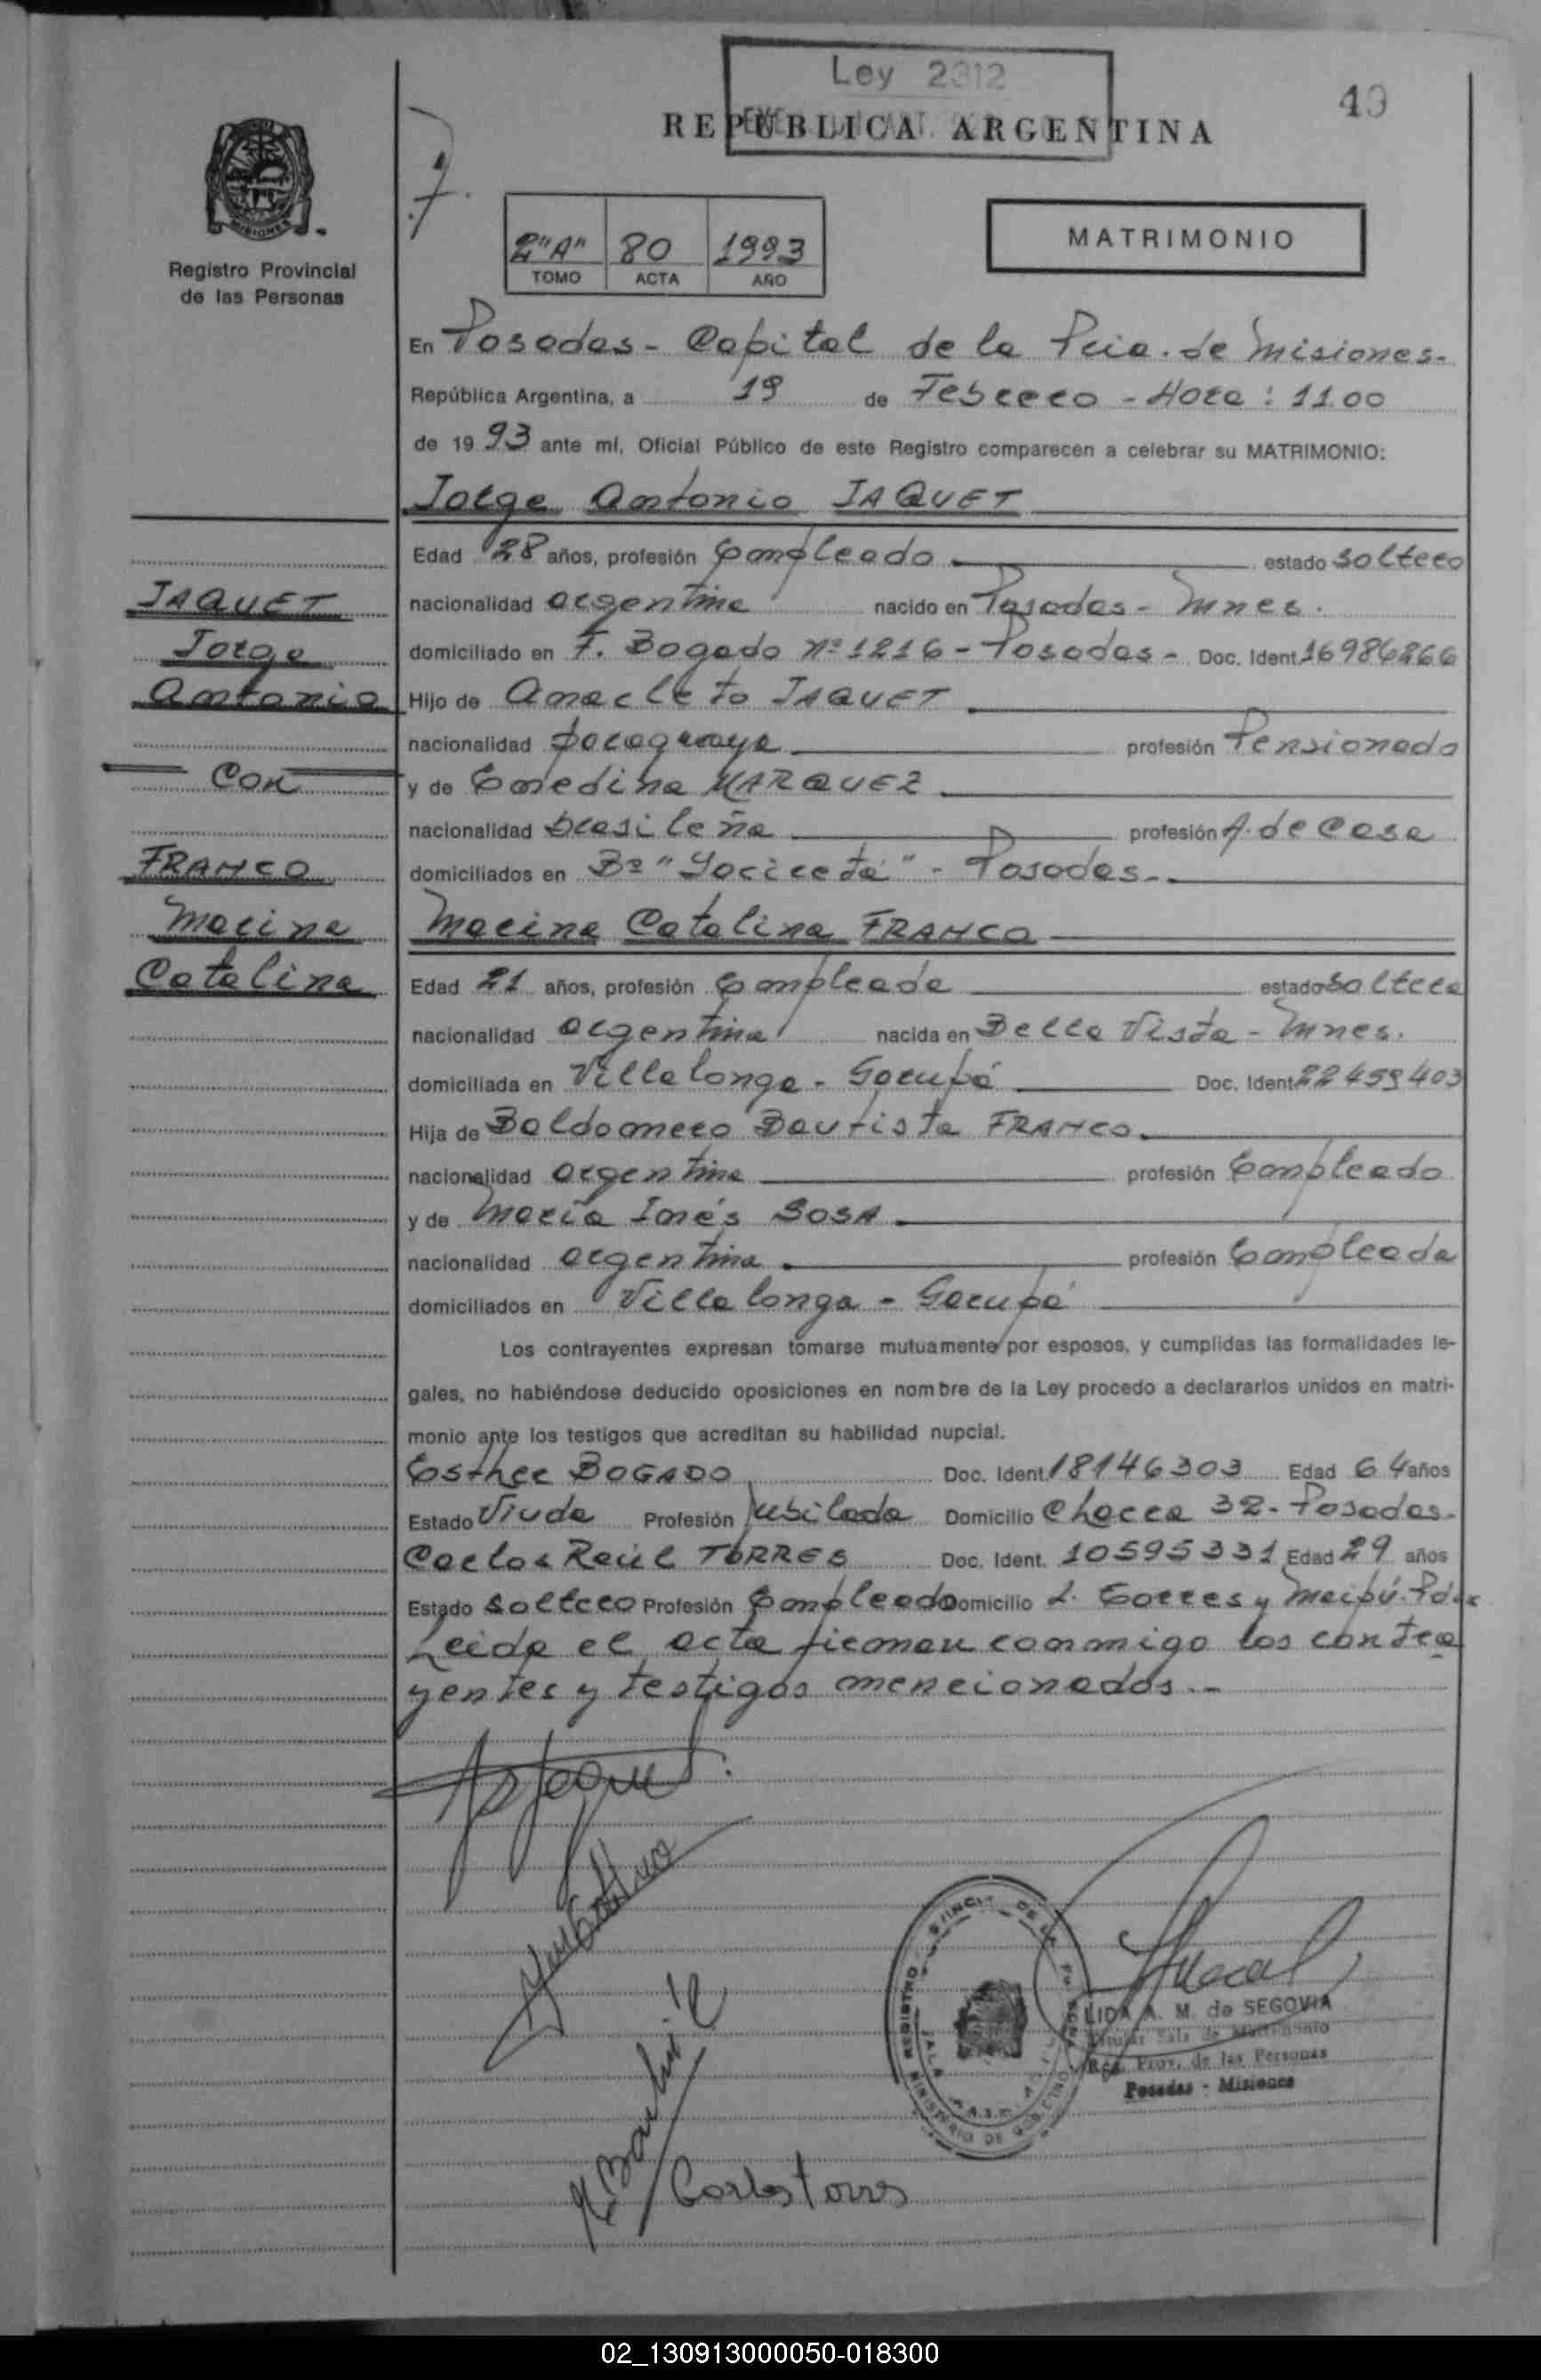 Ley 2312
49
REPUBLICA ARGENTINA
MISIONES
Registro Provincial
de las Personas
2"A" 80 1993
TOMO ACTA AÑO
MATRIMONIO
En Posadas - Capital de la Pcia. de Misiones.-
República Argentina, a 19 de Febrero - Hora: 11.00
de 1993 ante mí, Oficial Público de este Registro comparecen a celebrar su MATRIMONIO:
Jorge Antonio JAQUET
Edad 28 años, profesión Empleado estado soltero
JAQUET
nacionalidad argentina nacido en Posadas - Mnes.
Jorge
domiciliado en F. Bogado Nº 1216 - Posadas - Doc. Ident. 16986266
Antonio
Hijo de Anacleto JAQUET
nacionalidad paraguaya profesión Pensionado
Con
y de Enedina MARQUEZ
nacionalidad brasileña profesión A. de Casa
FRANCO
domiciliados en Bº "Yacireta" - Posadas.-
Marina
Marina Catalina FRANCO
Catalina
Edad 21 años, profesión Empleada estado soltera
nacionalidad argentina nacida en Bella Vista - Mnes.
domiciliada en Villalonga - Garupá Doc. Ident. 22459403
Hija de Baldomero Bautista FRANCO.
nacionalidad argentina profesión Empleado
y de María Inés SOSA
nacionalidad argentina profesión Empleada
domiciliados en Villa longa - Garupá
Los contrayentes expresan tomarse mutuamente por esposos, y cumplidas las formalidades le-
gales, no habiéndose deducido oposiciones en nombre de la Ley procedo a declararlos unidos en matri-
monio ante los testigos que acreditan su habilidad nupcial.
Esther BOGADO Doc. Ident. 18146303 Edad 64 años
Estado Viuda Profesión Jubilada Domicilio Chacra 32 - Posadas.
Carlos Raúl TORRES Doc. Ident. 10595331 Edad 29 años
Estado soltero Profesión Empleado Domicilio L. Torres y Maipú. Pdas
Leída el acta firman conmigo los contra
yentes y testigos mencionados.-
LIDA A. M. de SEGOVIA
Titular Sala de Matrimonio
Reg. Prov. de las Personas
Posadas - Misiones
REGISTRO PROVINCIAL DE LAS PERSONAS
MINISTERIO DE GOBIERNO
Carlos Torres
02_130913000050-018300